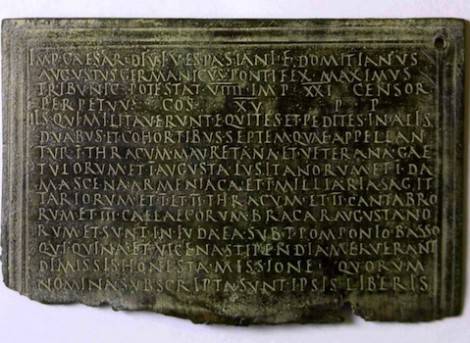 IMP·CAESAR·DIVI·VESPASIANI·F·DOMITIANVS
AVGVSTVS·GERMANICVS·PONTIFEX·MAXIMVS
TRIBVNIC·POTESTAT·VIIII·IMP·XXI·CENSOR
PERPETVVS·COS·XV·P·P
IIS·QVI·MILITAVERVNT·EQVITES·ET·PEDITES·IN·ALIS
DVABVS·ET·COHORTIBVS·SEPTEM·QVAE·APPELLAN
TVR·I·THRACVM·MAVRETANA·ET·VETERANA·GAE
TVLORVM·ET·I·AVGVSTA·LVSITANORVM·ET·I·DA
MASCENA·ARMENIACA·ET·I·MILLIARIA·SAGIT
TARIORVM·ET·I·ET·II·THRACVM·ET·II·CANTABRO
RVM·ET·III·CALLAECORVM·BRACARAVGVSTANO
RVM·ET·SVNT·IN·IVDAEA·SVB·T·POMPONIO·BASSO
QVI·QVINA·ET·VICENA·STIPENDIA·MERVERANT
DIMISSIS·HONESTA·MISSIONE·QVORVM
NOMINA·SVBSCRIPTA·SVNT·IPSIS·LIBERIS